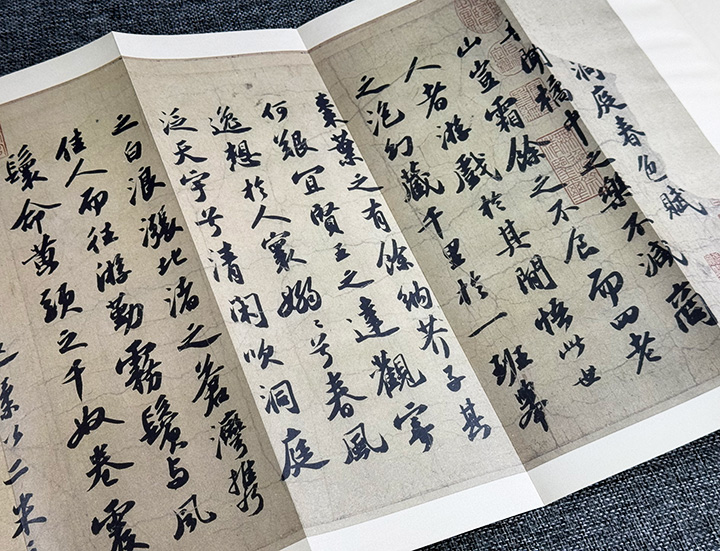 洞庭春色賦
吾聞橘中之樂不減商
山豈霜餘之不食而四老
人者游戲於其間悟此世
之泡幻藏千里於一班舉
棗葉之有餘納芥子其
何艱宜賢王之達觀寄
逸想於人寰嫋〻兮春風
泛天宇兮清閑吹洞庭
之白浪漲北渚之蒼灣攜
佳人而往游勤霧鬢与風
鬟命黃頭之千奴卷震
還糅以二米